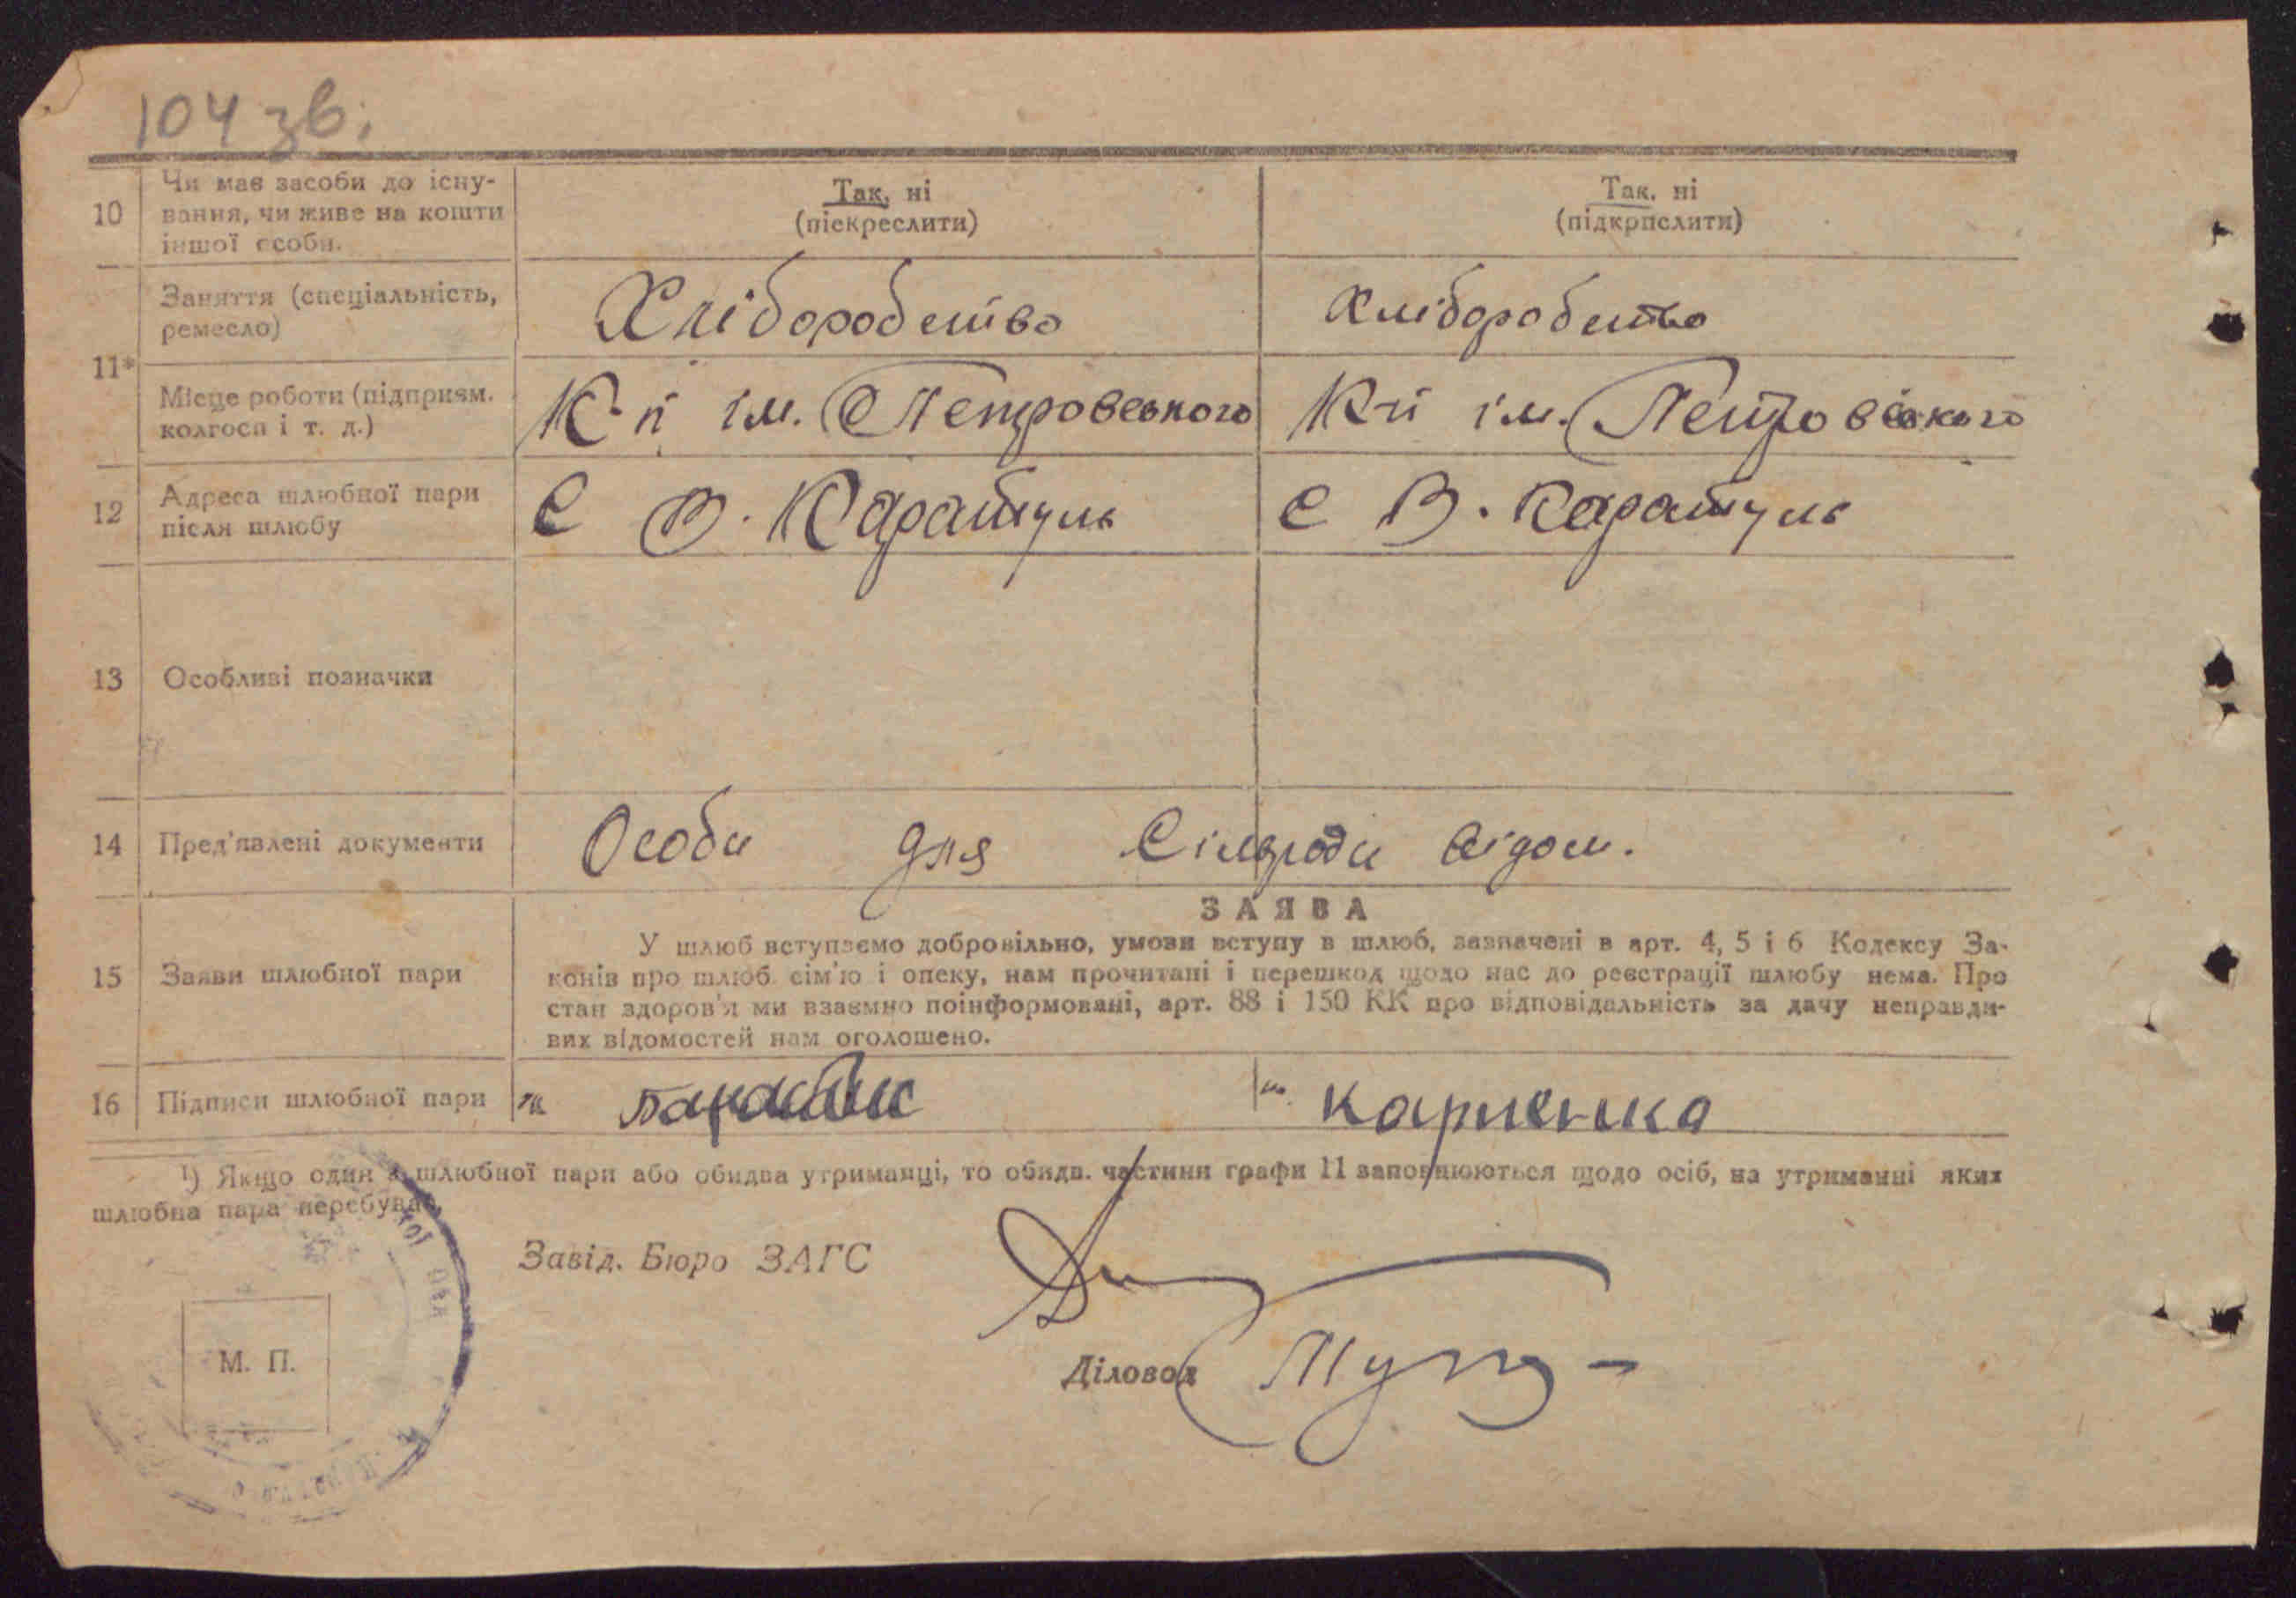 104 зв.
10
Чи має засоби до існу-
вання, чи живе на кошти
іншої особи.
Так, ні
(піскреслити)
Так, ні
(підкрпслити)
11*
Заняття (спеціальність,
ремесло)
Хліборобство
Хліборобство
Місце роботи (підприєм.
колгосп і т. д.)
К-п ім. Петровського
К-п ім. Петровського
12
Адреса шлюбної пари
після шлюбу
С В. Каратуль
С В. Каратуль
13
Особливі позначки
14
Пред'явлені документи
Особи для Сільради відом.
15
Заяви шлюбної пари
ЗАЯВА
У шлюб вступаємо добровільно, умови вступу в шлюб, зазначені в арт. 4, 5 і 6 Кодексу За-
конів про шлюб сім'ю і опеку, нам прочитані і перешкод щодо нас до реєстрації шлюбу нема. Про
стан здоров'я ми взаємно поінформовані, арт. 88 і 150 КК про відповідальність за дачу неправди-
вих відомостей нам оголошено.
16
Підписи шлюбної пари
карпенка
1) Якщо один з шлюбної пари або обидва утриманці, то обидв. частини графи 11 заповнюються щодо осіб, на утриманні яких
шлюбна пара перебуває.
Завід. Бюро ЗАГС
М. П.
Діловод